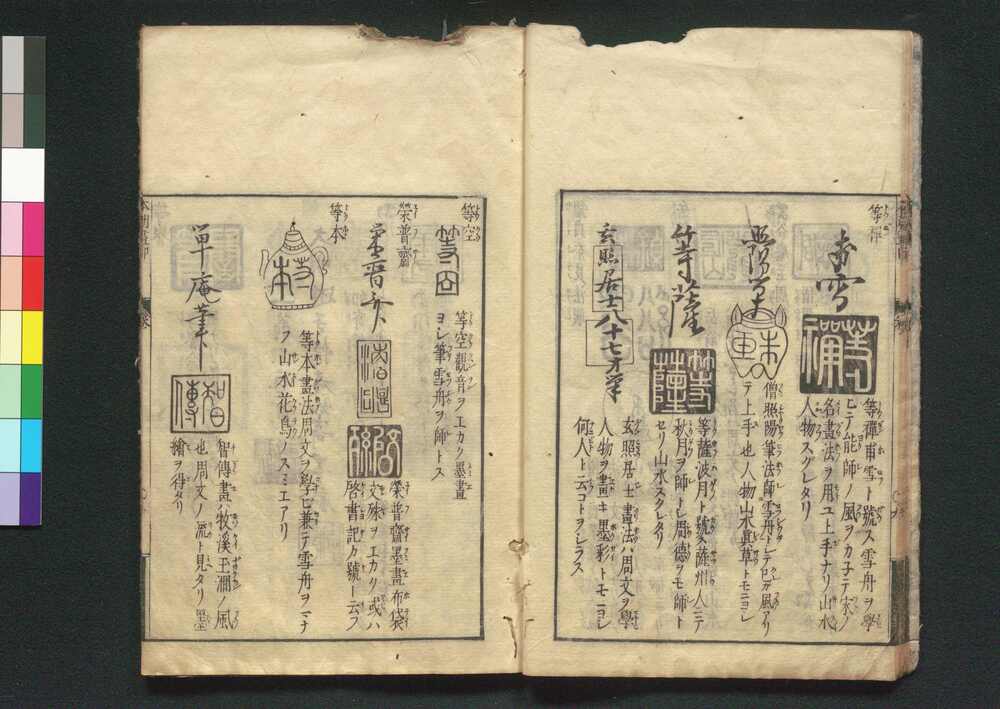 等禅
等禅
等禅甫雪ト號ス雪舟ヲ學
ヒテ能師ノ風ヲカ子テ家ノ
名畫法ヲ用ユ上手ナリ山水
人物スグレタリ
僧照陽筆法師雪舟トシテ己カ風アリ
テ上手也人物山水真草トモニヨシ
等薩
等薩
等薩波月ト號ス薩州人ニテ
秋月ヲ師トシ周德ヲモ師ト
セリ山水スグレタリ
玄照居士八十七才筆
玄照居士畫法ハ周文ヲ學
人物ヲ畫キ墨彩トモニヨシ
何人ト云コトヲシラス
等空
等空
等空觀音ヲエカク墨畫
ヨシ筆雪舟ヲ師トス
榮普齋
榮普齋墨畫布袋
文殊ヲエカク或ハ
啓書記カ號ト云フ
等本
等本
等本畫法周文ヲ學ヒ兼テ雪舟ヲマナ
フ山水花鳥ノスミエアリ
單庵筆
智傳
智傳畫ハ牧溪玉澗ノ風
也周文ノ流ト見タリ墨
繪ヲ得タリ